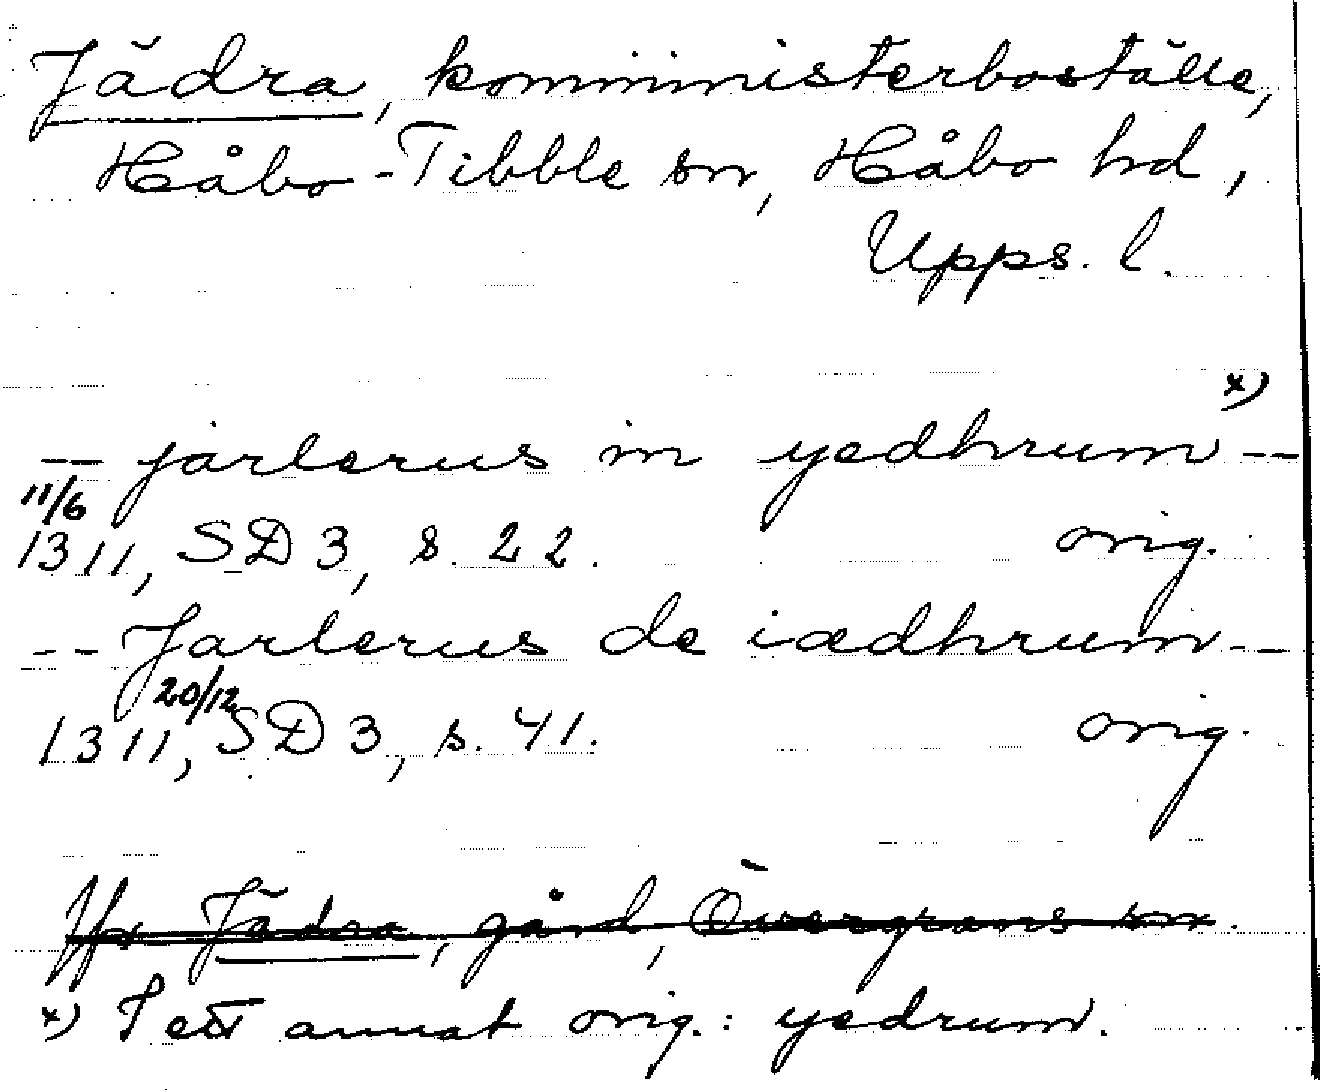 Jädra, komministerboställe,
Håbo-Tibble sn, Håbo hd,
Upps. l.
x)
-- jarlerus in yedhrum --
11/6
1311, SD 3, s. 22. orig.
-- Jarlerus de iædhrum --
20/12
1311, SD 3, s. 41. orig.
Jfr Jädra, gård, Övergrans sn.
x) I ett annat orig.: yedrum.